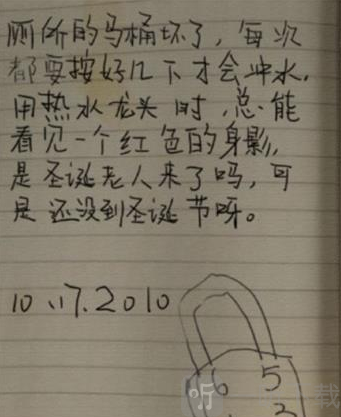 厕所的马桶坏了，每次
都要按好几下才会冲水.
用热水龙头时，总能
看见一个红色的身影,
是圣诞老人来了吗，可
是还没到圣诞节呀。
10.17.2010
6 5
3
听 载